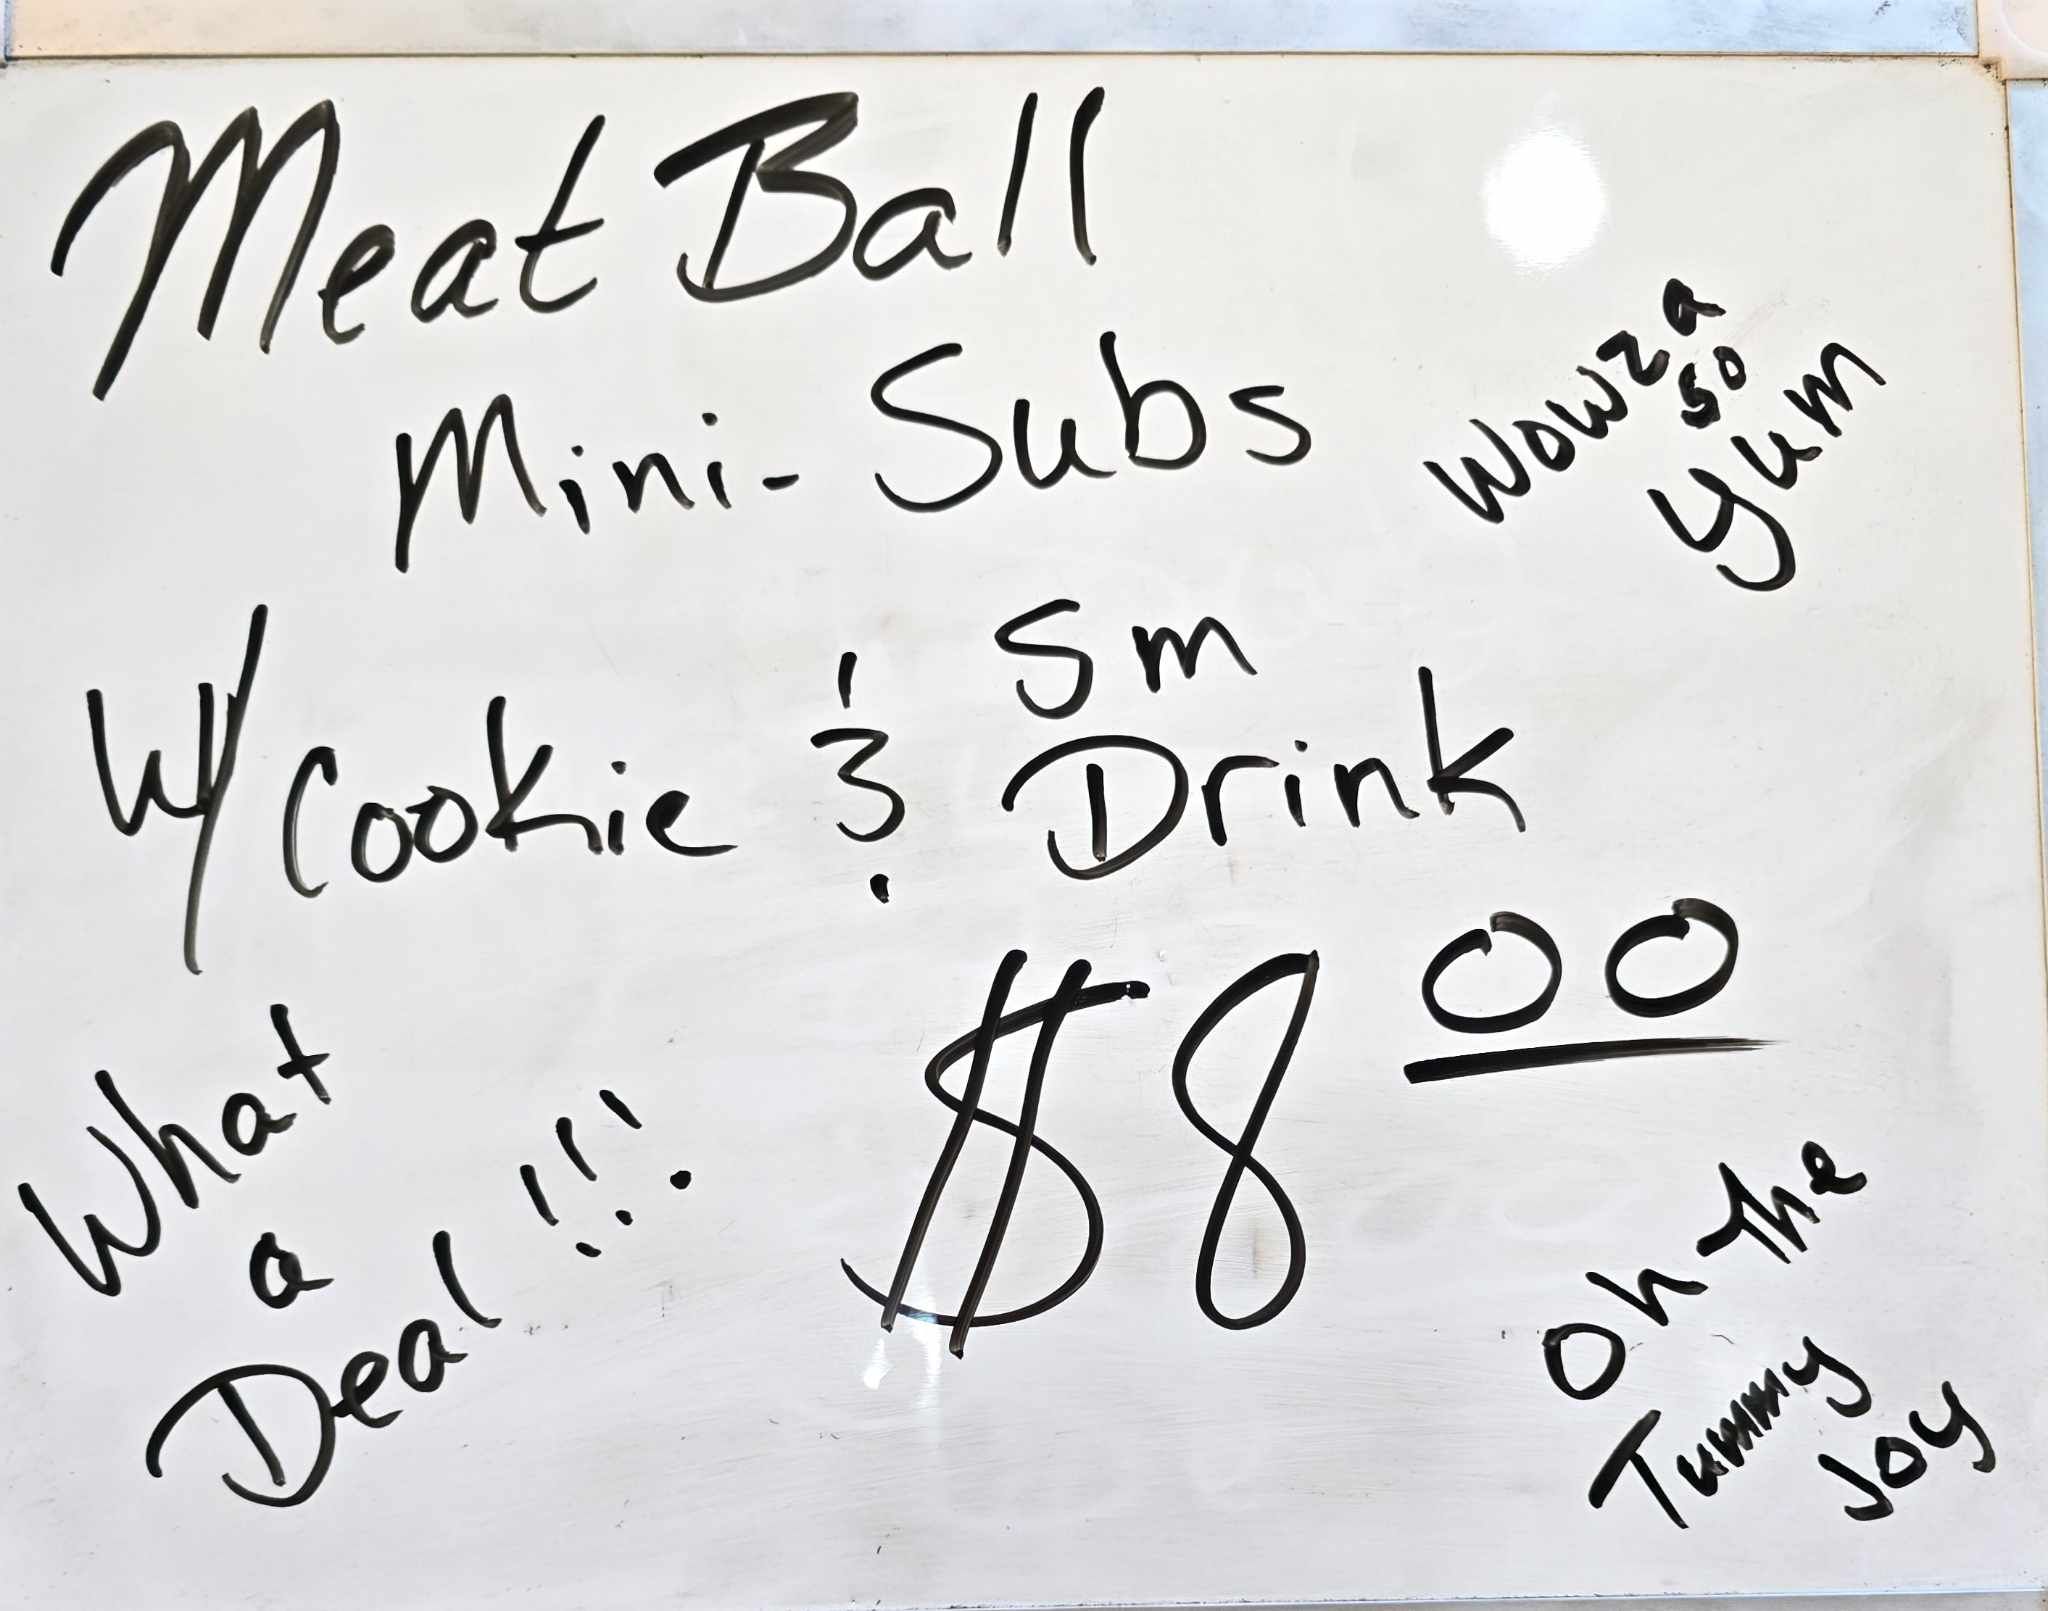 Meat Ball
Mini-Subs
Wowza
so
yum
W/ Cookie & Sm Drink
$8.00
What
a
Deal!!!
Oh The
Tummy
Joy